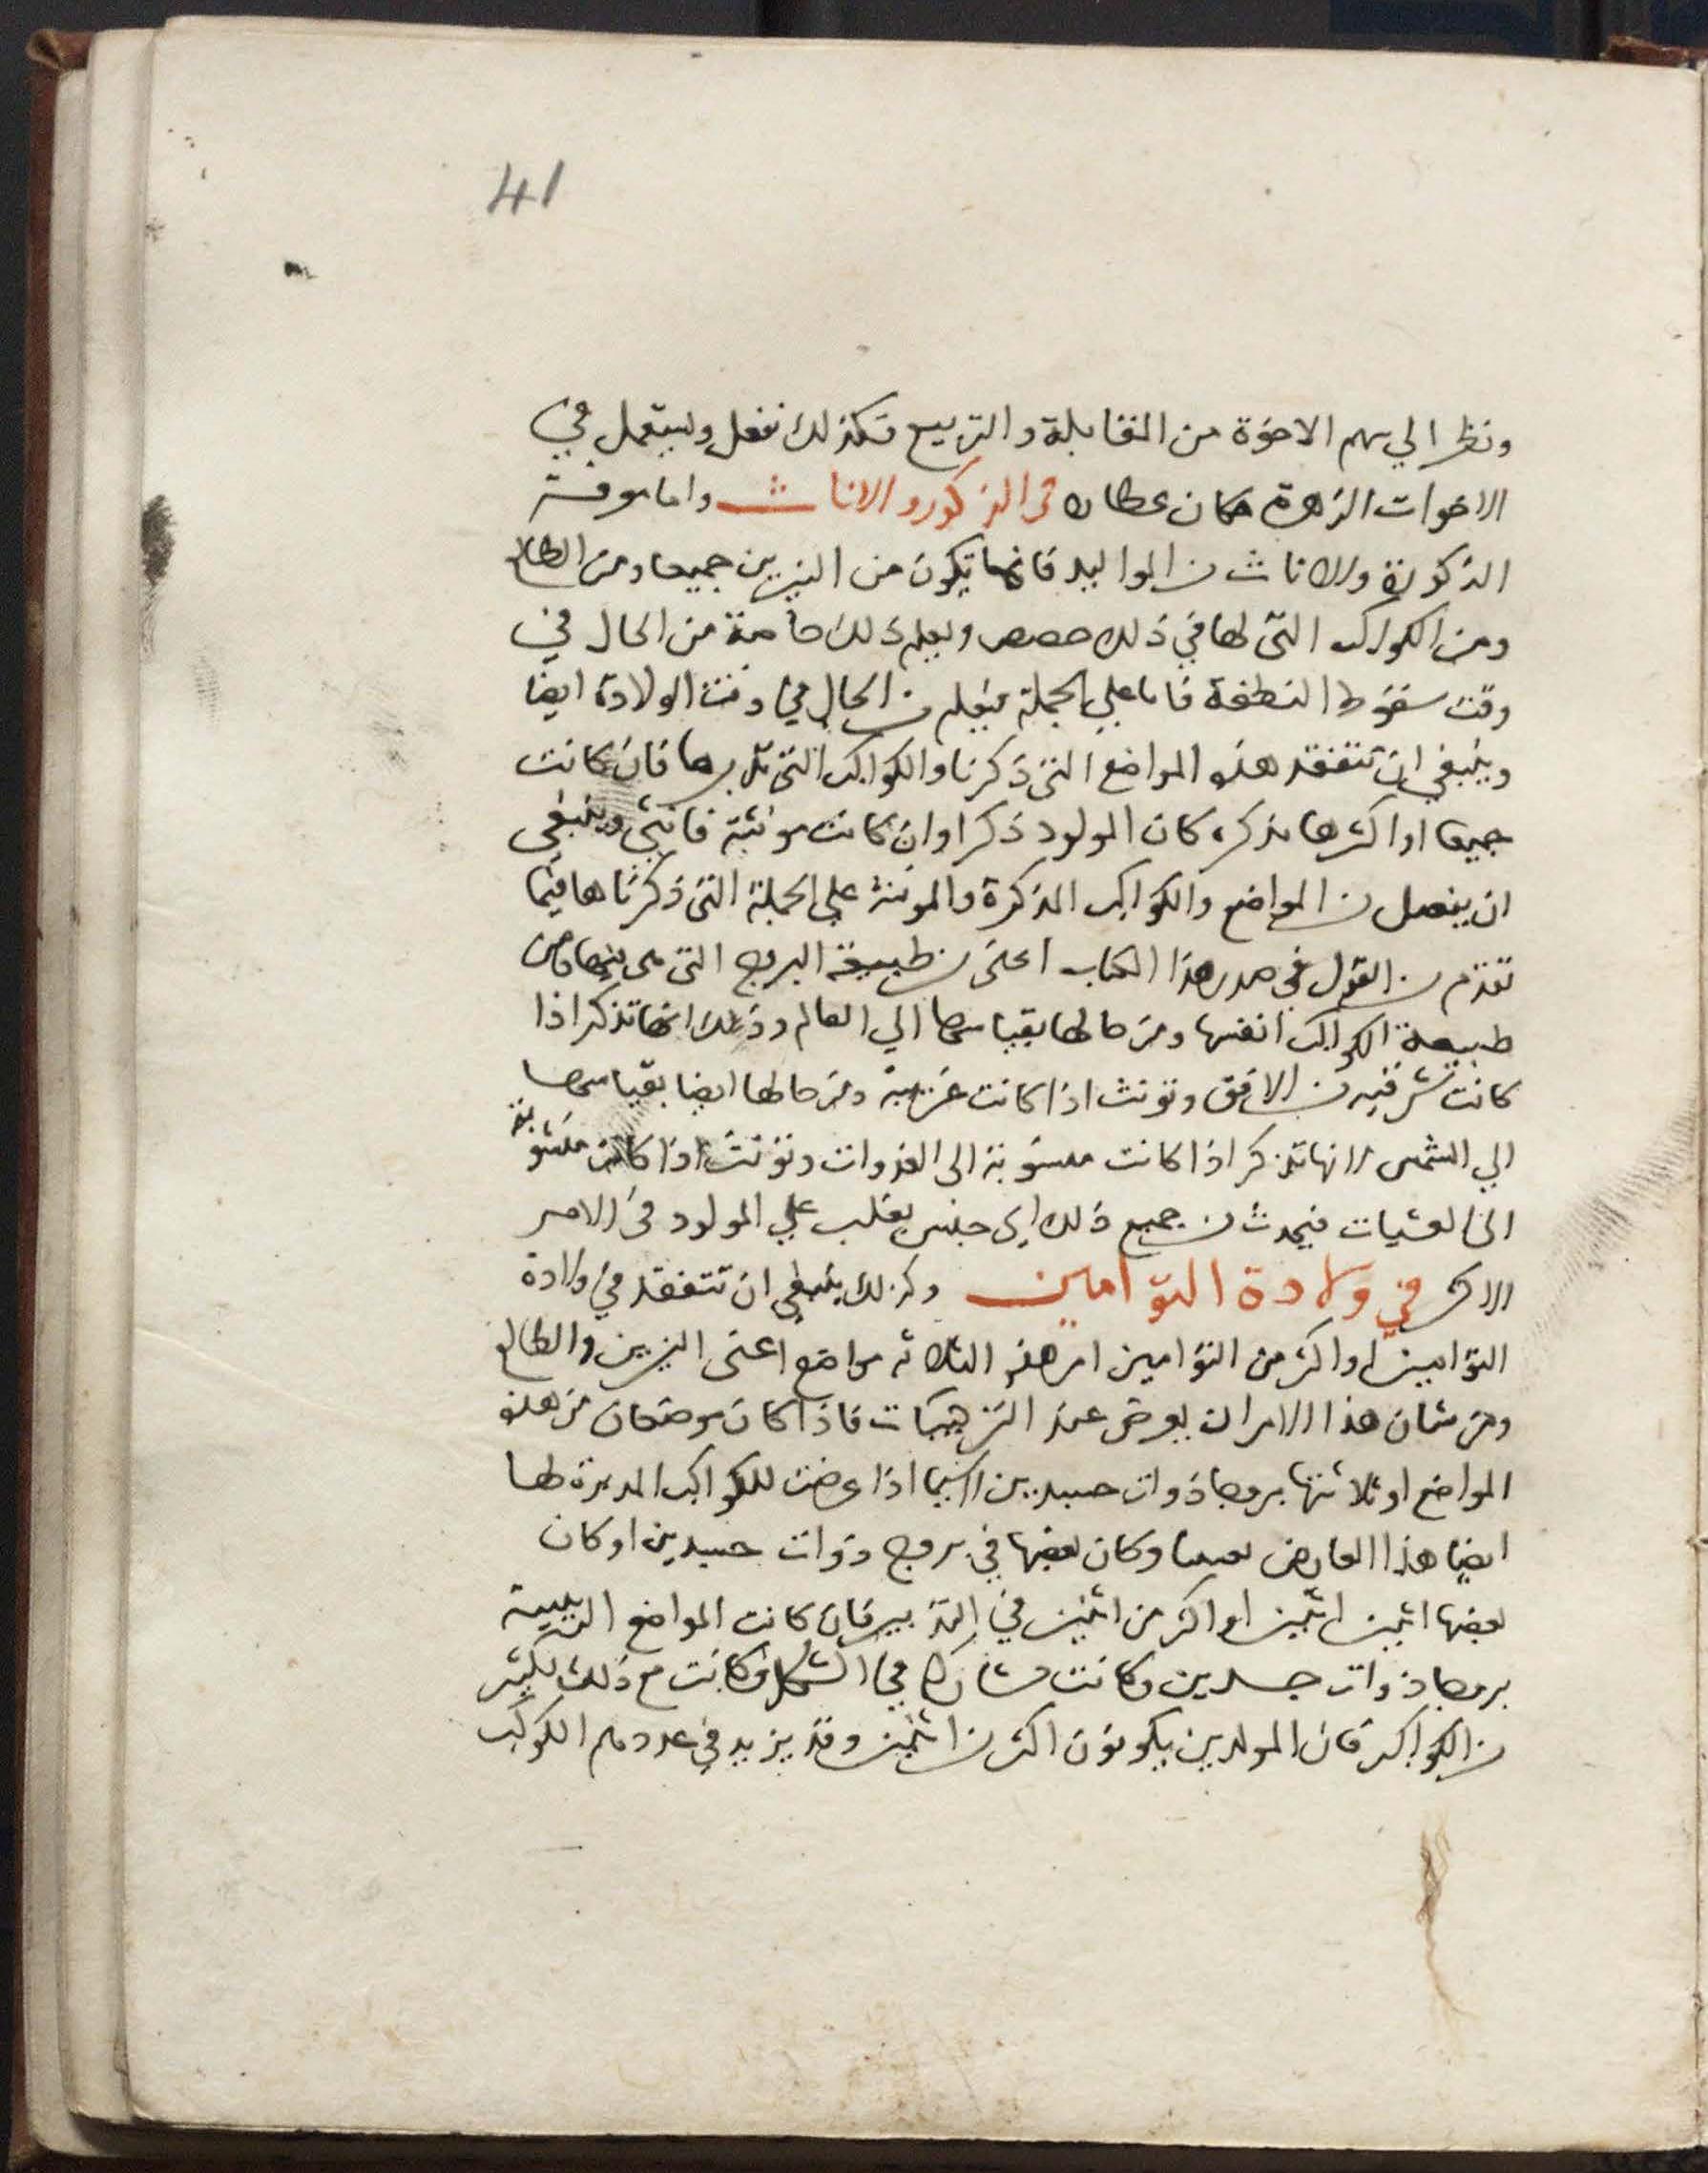 41
ونظر الي سهم الاخوة من المقابلة والتربيع فكذلك نفعل ونستعمل في
الاخوات الزهرة مكان عطارد في الذكور والاناث واما معرفة
الذكورة والاناث من المواليد فانها تكون من النيرين جميعا ومن الطالع
ومن الكواكب التي لها في ذلك حصص ويعلم ذلك خاصة من الحال في
وقت سقوط النطفة فاما علي الجملة فيعلم من الحال في وقت الولادة ايضا
وينبغي ان تتفقد هذه المواضع التي ذكرنا والكواكب التي تدبرها فان كانت
جميعا او اكثرها مذكره كان المولود ذكرا وان كانت مونثة فانثي وينبغي
ان يفصل من المواضع والكواكب المذكرة والمونثة علي الجملة التي ذكرناها فيما
تقدم من القول في صدر هذا الكتاب اعني من طبيعة البروج التي هي فيها ومن
طبيعة الكواكب انفسها ومن حالها بقياسها الي العالم وذلك انها تذكر اذا
كانت شرقيه من الافق وتونث اذا كانت غربية ومن حالها ايضا بقياسها
الي الشمس لانها تذكر اذا كانت منسوبة الى الغدوات وتونث اذا كانت منسوبة
الي العشيات فيحدث من جميع ذلك اي جنس يغلب علي المولود في الامر
الاكثر في ولادة التوامين وكذلك ينبغي ان تتفقد في ولادة
التوامين او اكثر من التوامين امر هذه الثلاثه مواضع اعني النيرين والطالع
ومن شان هذا الامر ان يعرض عند التركيبات فاذا كان موضعان من هذه
المواضع او ثلاثتها بروجا ذوات جسدين لاسيما اذا عرضت للكواكب المدبرة لها
ايضا هذا العارض بعينه وكان بعضها في بروج ذوات جسدين او كان
بعضها اثنين اثنين او اكثر من اثنين في التدبير فان كانت المواضع الرييسية
بروجا ذوات جسدين وكانت مشاركا في الشكل وكانت مع ذلك بكثير
من الكواكب فان المولدين يكونون اكثر من اثنين وقد يزيد في عددهم الكوكب